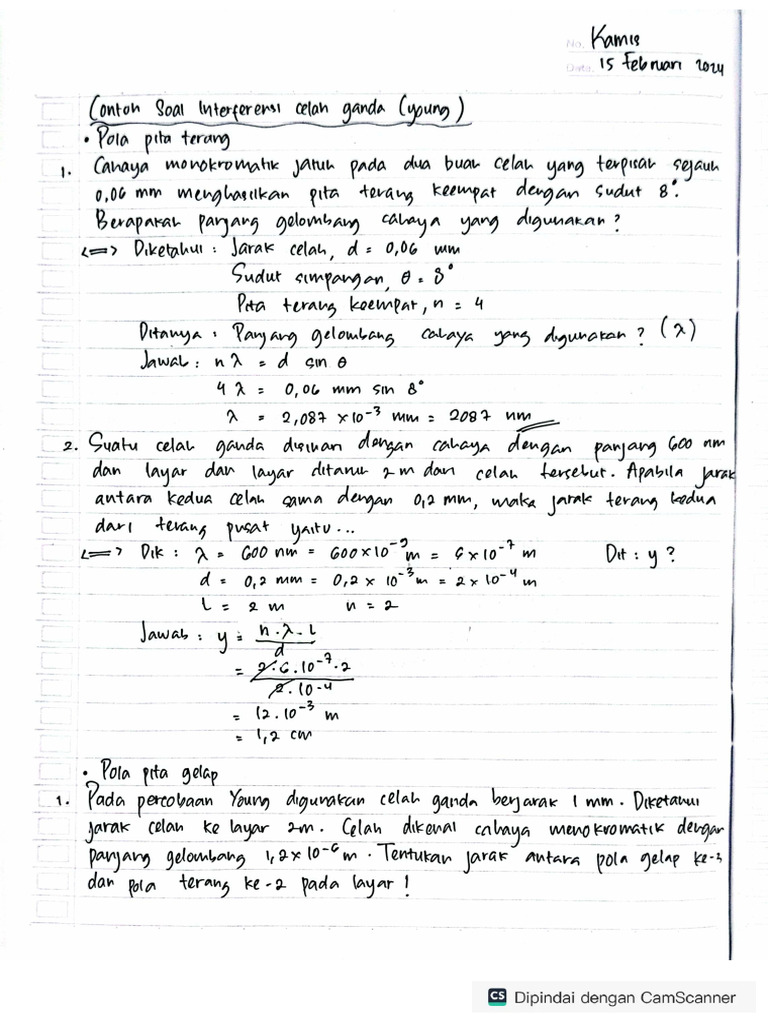 No. Kamis
Date. 15 Februari 2024
Contoh Soal Interferensi celah ganda (young)
• Pola pita terang
1. Cahaya monokromatik jatuh pada dua buah celah yang terpisah sejauh
0,06 mm menghasilkan pita terang keempat dengan sudut 8°.
Berapakah panjang gelombang cahaya yang digunakan?
<=> Diketahui : Jarak celah, d = 0,06 mm
Sudut simpangan, θ = 8°
Pita terang keempat, n = 4
Ditanya : Panjang gelombang cahaya yang digunakan? (λ)
Jawab : n λ = d sin θ
4 λ = 0,06 mm sin 8°
λ = 2,087 × 10⁻³ mm = 2087 nm
2. Suatu celah ganda disinari dengan cahaya dengan panjang 600 nm
dan layar dan layar ditaruh 2 m dari celah tersebut. Apabila jarak
antara kedua celah sama dengan 0,2 mm, maka jarak terang kedua
dari terang pusat yaitu...
<=> Dik : λ = 600 nm = 600 × 10⁻⁹ m = 6 × 10⁻⁷ m Dit : y ?
d = 0,2 mm = 0,2 × 10⁻³ m = 2 × 10⁻⁴ m
L = 2 m n = 2
Jawab : y = n . λ . L
d
= 2 . 6 . 10⁻⁷ . 2
2 . 10⁻⁴
= 12 . 10⁻³ m
= 1,2 cm
• Pola pita gelap
1. Pada percobaan Young digunakan celah ganda berjarak 1 mm. Diketahui
jarak celah ke layar 2m. Celah dikenai cahaya monokromatik dengan
panjang gelombang 1,2 × 10⁻⁶ m. Tentukan jarak antara pola gelap ke-3
dan pola terang ke-2 pada layar!
CS Dipindai dengan CamScanner